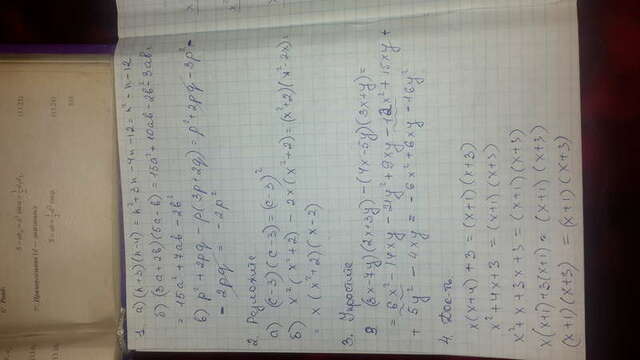 1. а) (n+3)(n-4) = n² + 3n - 4n - 12 = n² - n - 12
б) (3a+2b)(5a-b) = 15a² + 10ab - 2b² - 3ab =
= 15a² + 7ab - 2b²
в) p² + 2pq - p(3p+2q) = p² + 2pq - 3p² -
- 2pq = -2p²
2. Разложите
а) (c-3)(c-3) = (c-3)²
б) x²(x²+2) - 2x(x²+2) = (x²+2)(x²-2x) =
= x(x²+2)(x-2)
3. Упростите
(3x-7y)(2x+3y) - (4x-5y)(3x+y) =
= 6x² - 14xy - 21y² + 9xy - 12x² + 15xy +
+ 5y² - 4xy = -6x² + 6xy - 16y²
4. Док-ть.
x(x+4) + 3 = (x+1)(x+3)
x² + 4x + 3 = (x+1)(x+3)
x² + x + 3x + 3 = (x+1)(x+3)
x(x+1) + 3(x+1) = (x+1)(x+3)
(x+1)(x+3) = (x+1)(x+3)